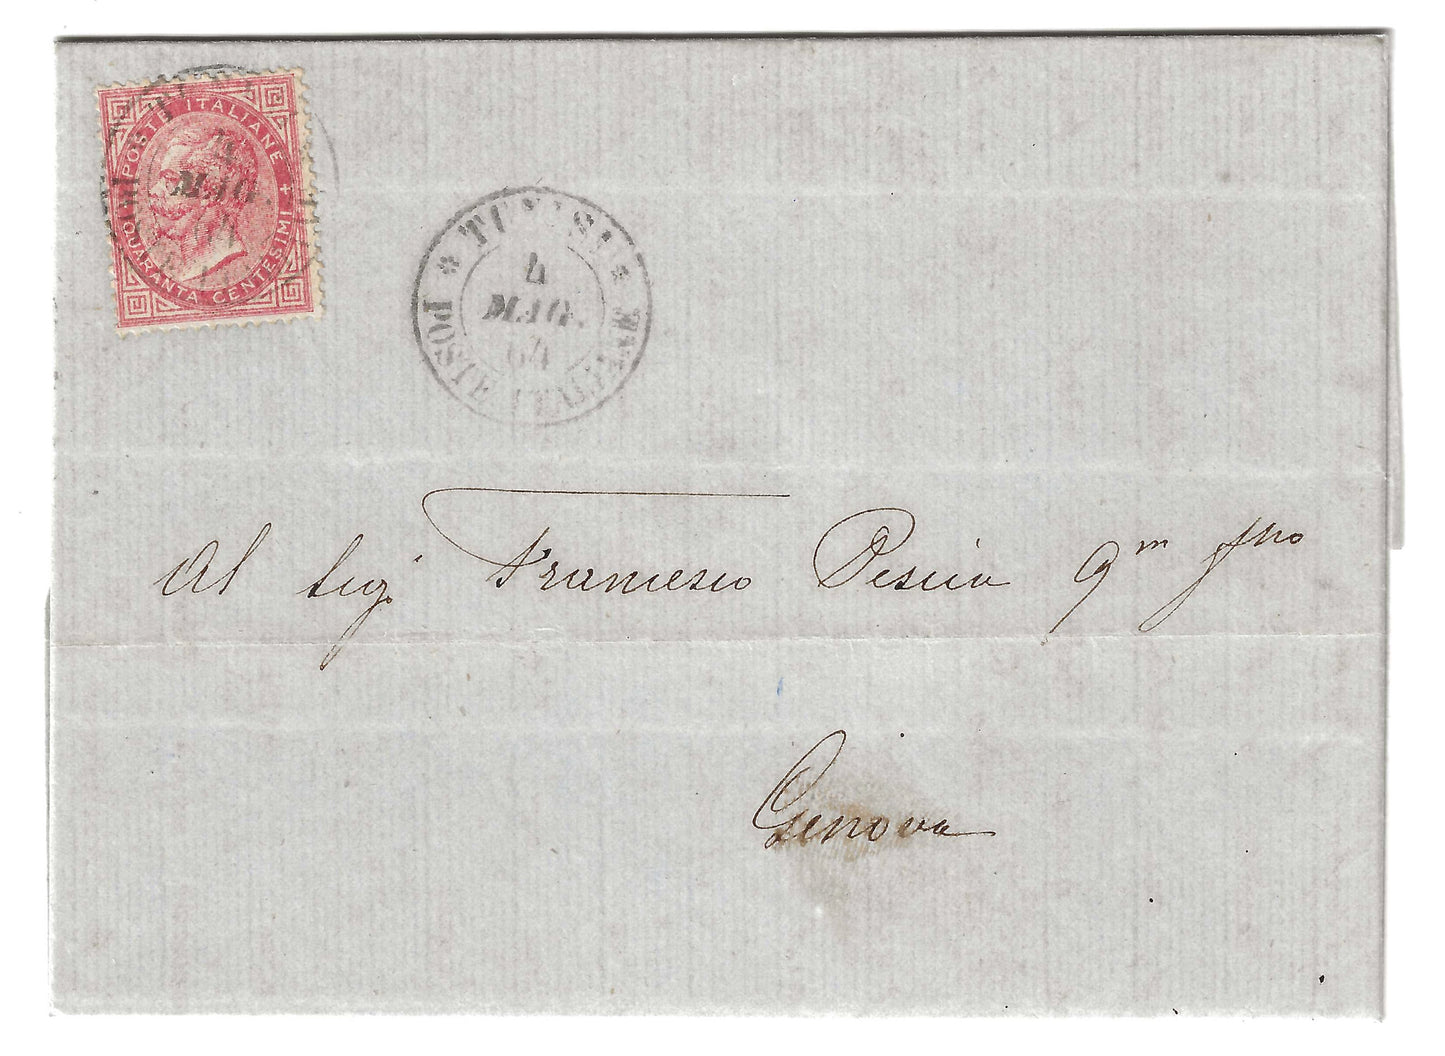 POSTE ITALIANE
QUARANTA CENTESIMI
TUNISI
4
MAG.
64
POSTE ITALIANE
4
MAG.
64
Al Sig.r Francesco Pescia qm
Genova